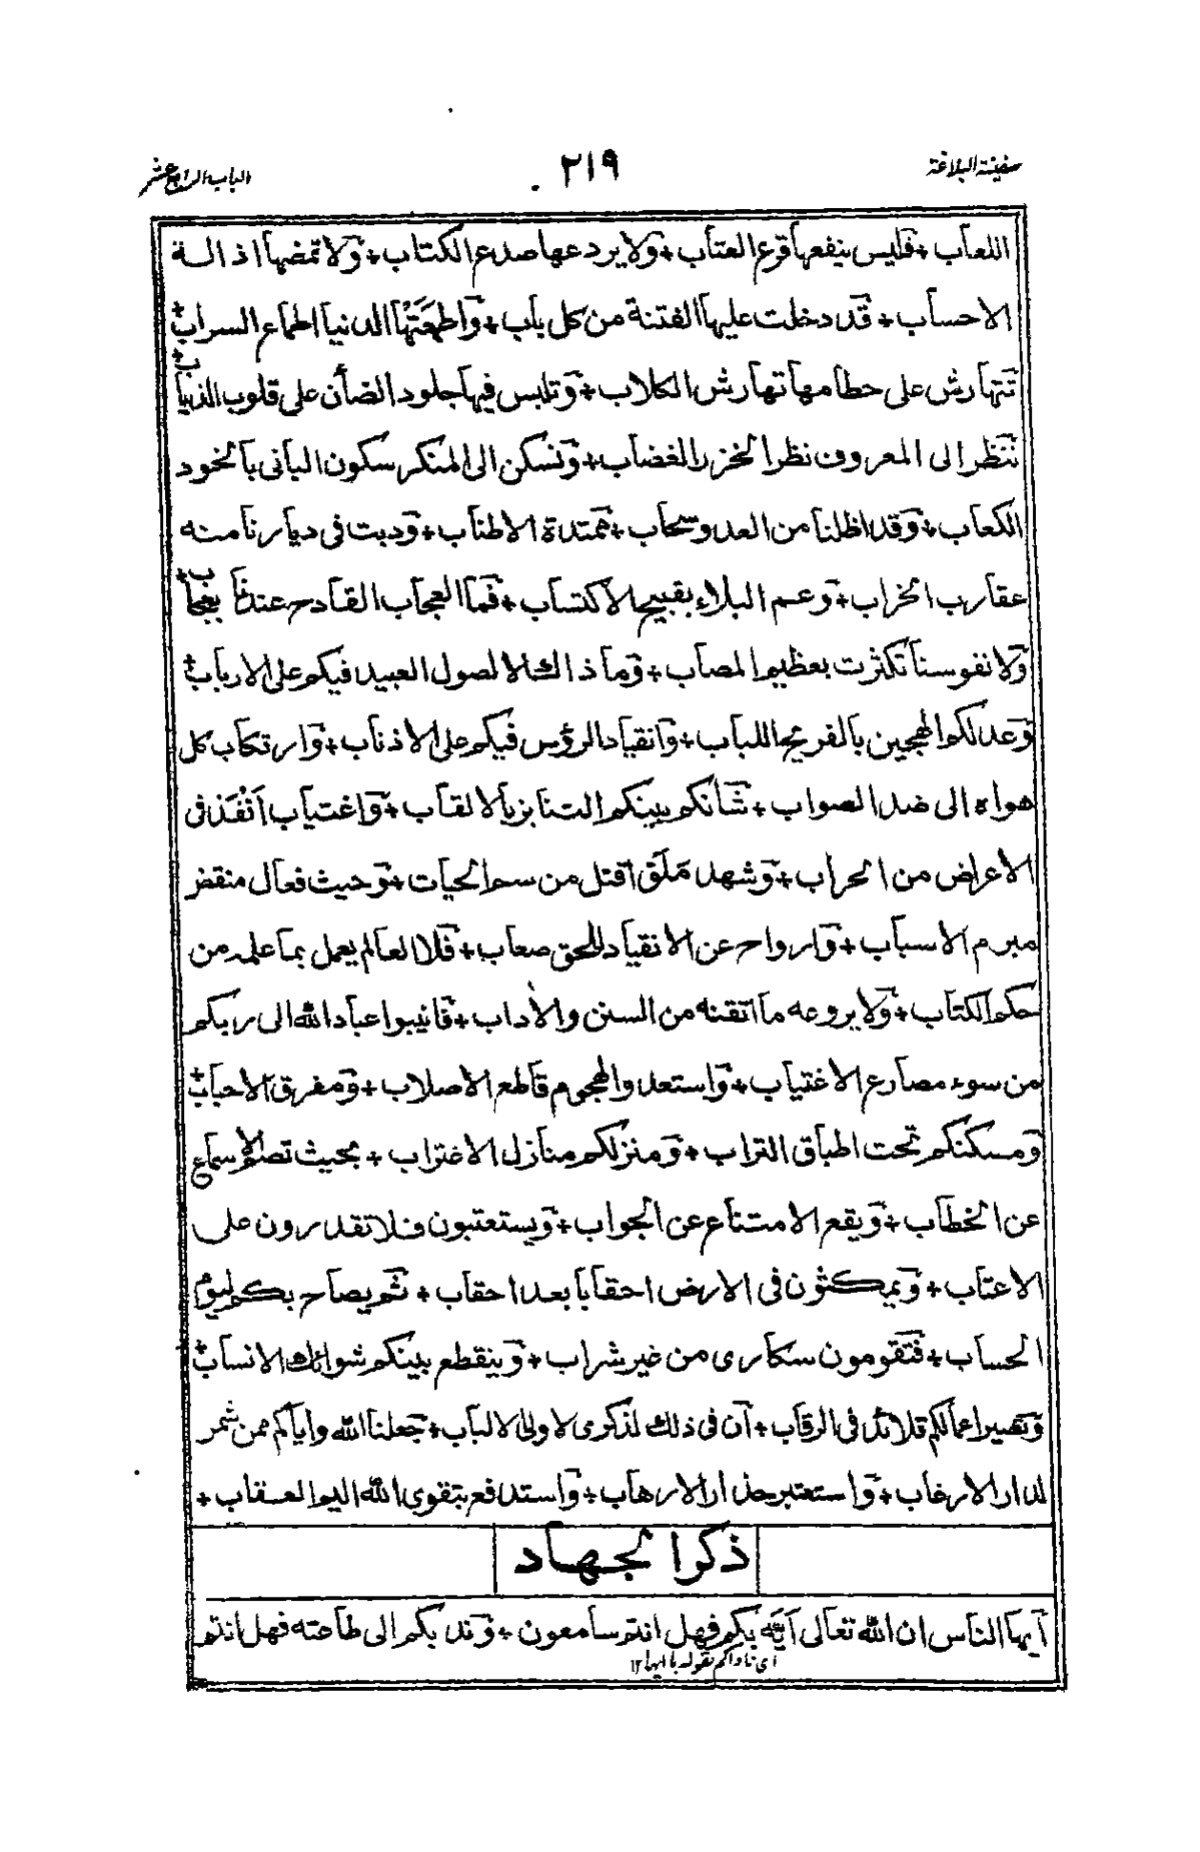 سفينة البلاغة
٢١٩
الباب الرابع عشر
اللعاب + فليس ينفعها قرع العتاب + ولا يردعها صدع الكتاب + ولا تمضها اذالة
الاحساب + قد دخلت عليها الفتنة من كل باب + واطمعتها الدنيا اطماع السراب +
تتهارش على حطامها تهارش الكلاب + وتلبس فيها جلود الضأن على قلوب الذياب +
تنظر الى المعروف نظر الخزر الغضاب + وتسكن الى المنكر سكون الباني بالخود
الكعاب + وقد اظلنا من العدو سحاب + ممتدة الاطناب + ودبت في ديارنا منه
عقارب الخراب + وعم البلاء بقبيح الاكتساب + فما العجاب القادح عندنا بعجاب +
ولا نفوسنا تكثرت بعظيم المصاب + وما ذاك الا لصول العبيد فيكم على الارباب +
وعدلكم الهجين بالفريج اللباب + وانقياد الرؤس فيكم على الاذناب + وارتكاب كل
هواه الى ضد الصواب + شأنكم بينكم التنابز بالالقاب + واغتياب انفذ في
الاعراض من الحراب + وشهد ملق اقتل من سم الحيات + وحيث فعال منقض
مبرم الاسباب + وارواح عن الانقياد للحق صعاب + فلا العالم يعمل بما علمه من
حكم الكتاب + ولا يروعه ما اتقنه من السنن والاداب + فانيبوا عباد الله الى ربكم
من سوء مصارع الاغتياب + واستعدوا لهجوم قاطع الاصلاب + ومفرق الاحباب +
ومسكنكم تحت اطباق التراب + ومنزلكم منازل الاغتراب + بحيث تصم الاسماع
عن الخطاب + ويقع الامتناع عن الجواب + ويستعتبون فلا تقدرون على
الاعتاب + ويمكثون في الارض احقابا بعد احقاب + ثم يصاح بكم ليوم
الحساب + فتقومون سكارى من غير شراب + وينقطع بينكم شوابك الانساب +
وتصير اعمالكم قلائد في الرقاب + ان في ذلك لذكرى لاولى الالباب + جعلنا الله واياكم ممن شمر
لدار الارغاب + واستعتبر حذار الارهاب + واستدفع بتقوى الله اليم العقاب +
ذكر الجهاد
ايها الناس ان الله تعالى ايّه بكم فهل انتم سامعون + وندبكم الى طاعته فهل انتم
اى ناداكم بقوله يا ايها ١٢